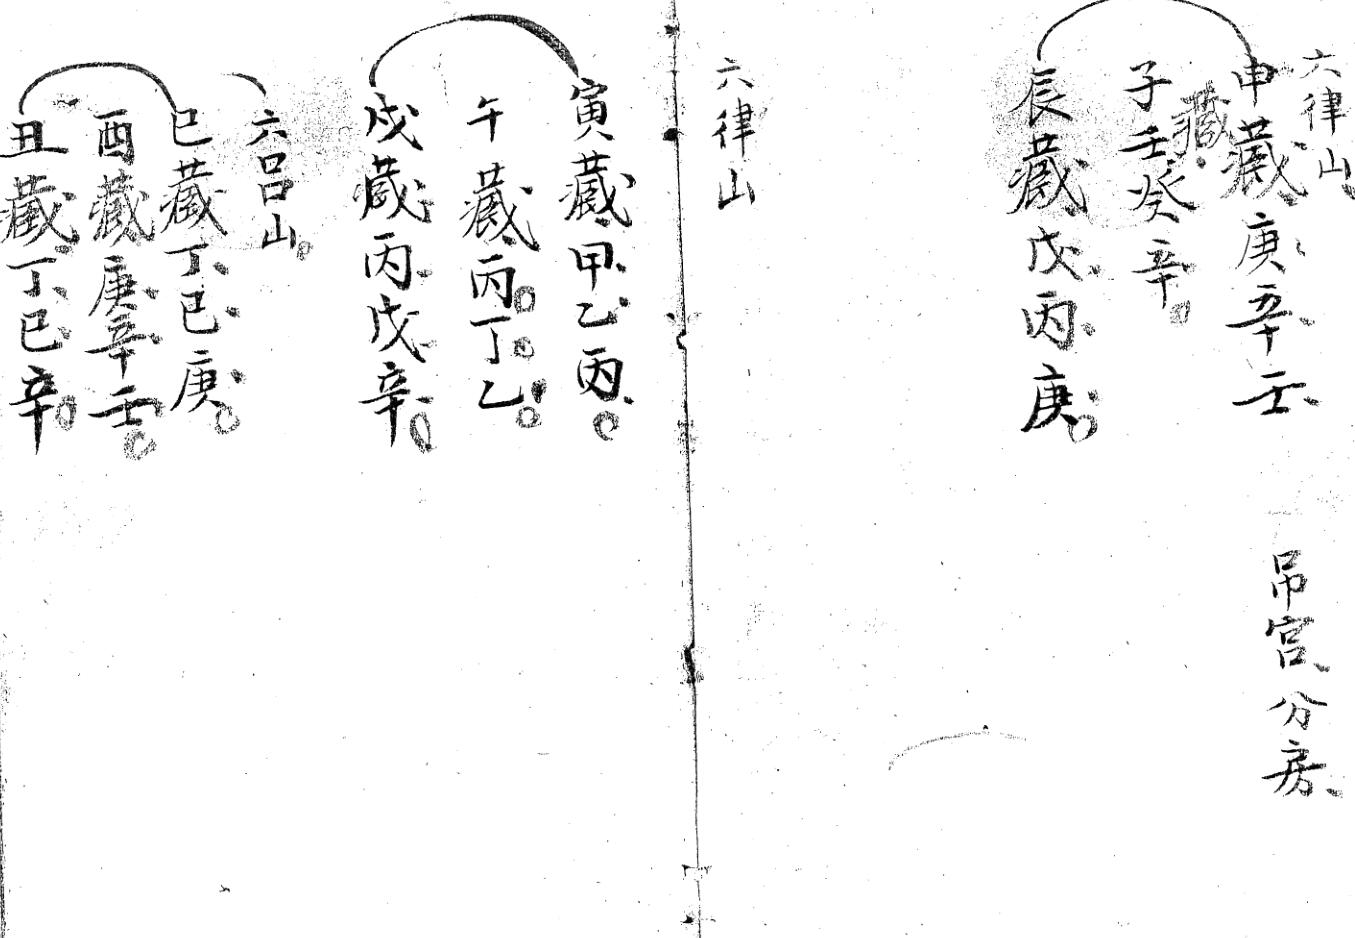 六律山
申藏庚辛壬
子藏壬癸辛
辰藏戊丙庚
吊宫分房
六律山
寅藏甲乙丙
午藏丙丁乙
戌藏丙戊辛
六呂山
巳藏丁己庚
酉藏庚辛壬
丑藏丁己辛